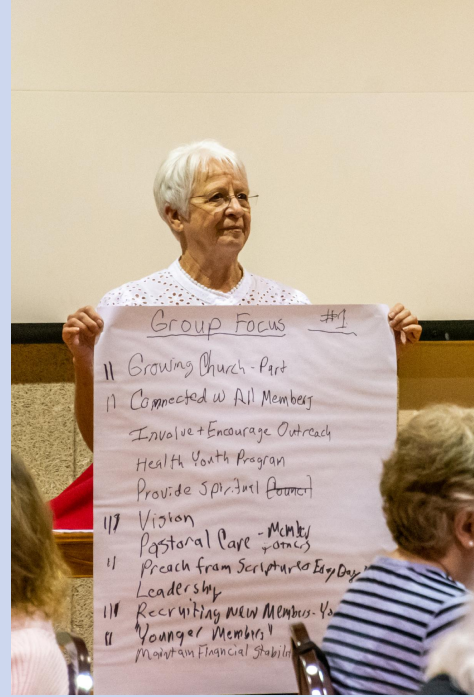 Group Focus #1
Growing Church - Part
Connected w All Members
Involve + Encourage Outreach
Health Youth Program
Provide Spiritual Council
Vision
Pastoral Care -
+ others
Preach from Scriptures Every Day
Leadership
Recruiting New Members -
"Younger Members"
Maintain Financial